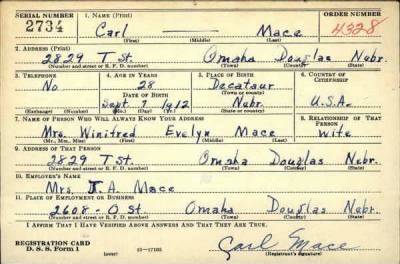 SERIAL NUMBER 1. NAME (Print) ORDER NUMBER
2734 Carl —— Mace 4328
(First) (Middle) (Last)
2. ADDRESS (Print)
2829 T St. Omaha Douglas Nebr.
(Number and street or R. F. D. number) (Town) (County) (State)
3. TELEPHONE 4. AGE IN YEARS 5. PLACE OF BIRTH 6. COUNTRY OF CITIZENSHIP
No 28 Decataur
DATE OF BIRTH (Town or county)
Sept 7 1912 Nebr. U.S.A.
(Exchange) (Number) (Mo.) (Day) (Yr.) (State or country)
7. NAME OF PERSON WHO WILL ALWAYS KNOW YOUR ADDRESS 8. RELATIONSHIP OF THAT PERSON
Mrs. Winifred Evelyn Mace Wife
(Mr., Mrs., Miss) (First) (Middle) (Last)
9. ADDRESS OF THAT PERSON
2829 T St. Omaha Douglas Nebr.
(Number and street or R. F. D. number) (Town) (County) (State)
10. EMPLOYER'S NAME
Mrs. A. Mace
11. PLACE OF EMPLOYMENT OR BUSINESS
2608 - O St. Omaha Douglas Nebr.
(Number and street or R. F. D. number) (Town) (County) (State)
I AFFIRM THAT I HAVE VERIFIED ABOVE ANSWERS AND THAT THEY ARE TRUE.
REGISTRATION CARD
D. S. S. Form 1 (over) 16—17105 Carl Mace
(Registrant's signature)